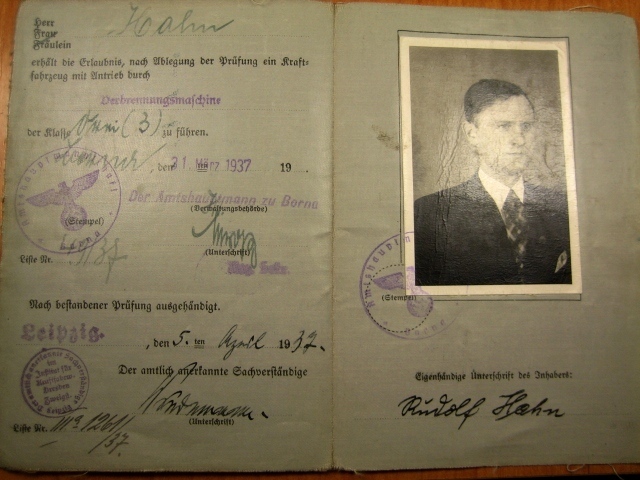 Herr
Frau
Fräulein
Hahn
erhält die Erlaubnis, nach Ablegung der Prüfung ein Kraft-
fahrzeug mit Antrieb durch
Verbrennungsmaschine
der Klasse Drei (3) zu führen.
Borna, den 31. März 1937 19
Der Amtshauptmann zu Borna
(Verwaltungsbehörde)
(Stempel)
(Unterschrift)
Liste Nr. /37
Nach bestandener Prüfung ausgehändigt.
Leipzig, den 5. ten April 1937.
Der amtlich anerkannte Sachverständige
(Unterschrift)
Liste Nr. 1261/37
(Stempel)
Eigenhändige Unterschrift des Inhabers:
Rudolf Hahn